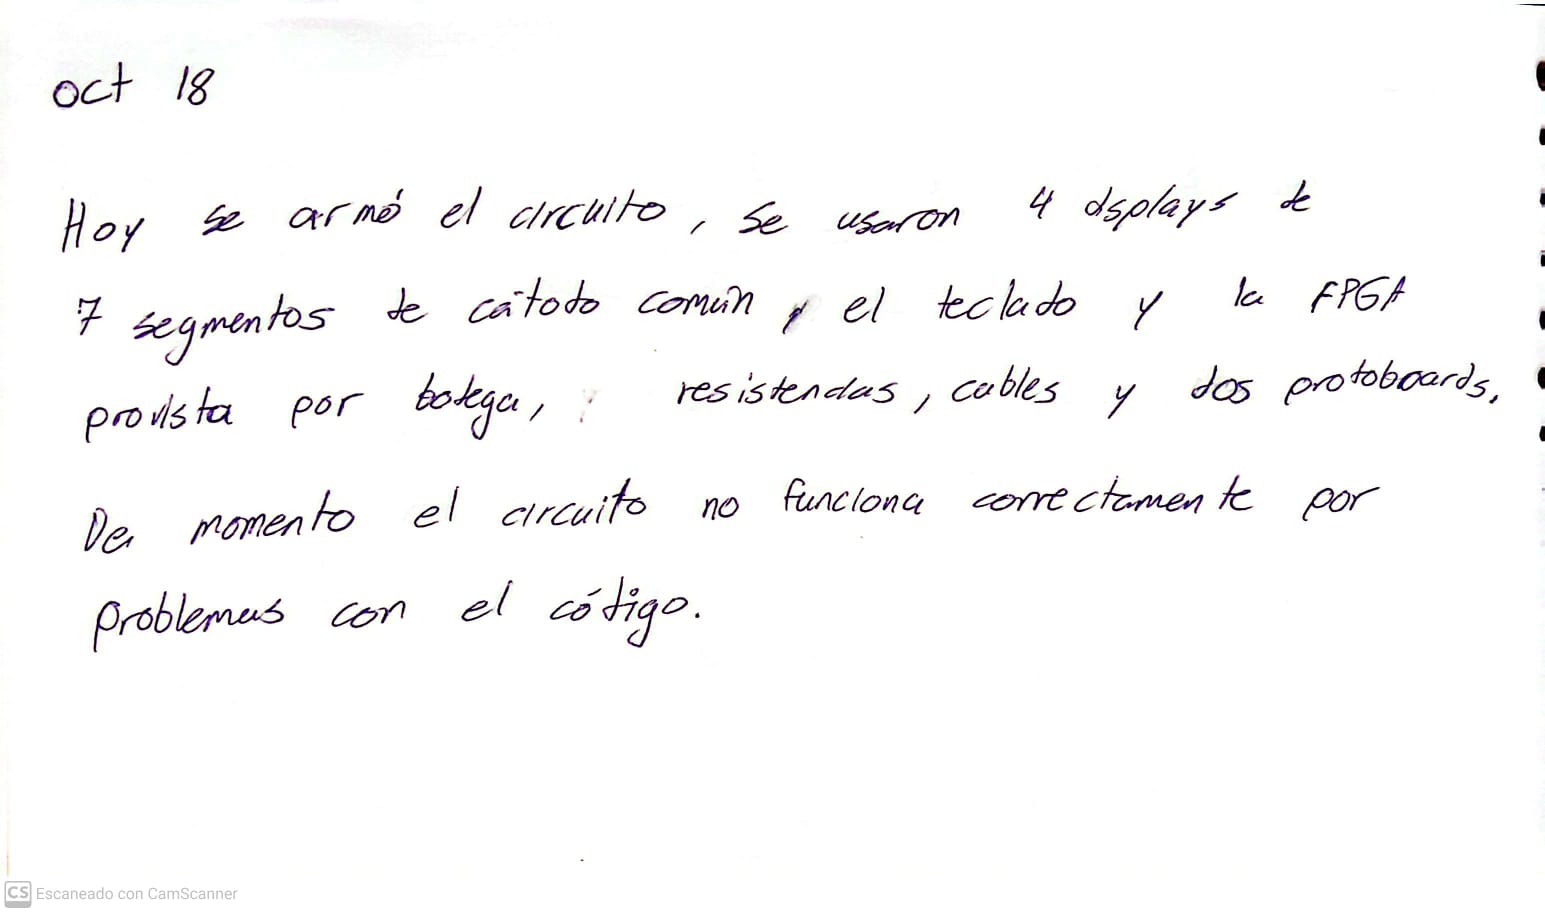 oct 18
Hoy se armó el circuito, se usaron 4 dsplays de
7 segmentos de cátodo común, el teclado y la FPGA
provista por bodega, resistencias, cables y dos protoboards.
De momento el circuito no funciona correctamente por
problemas con el código.
CS Escaneado con CamScanner